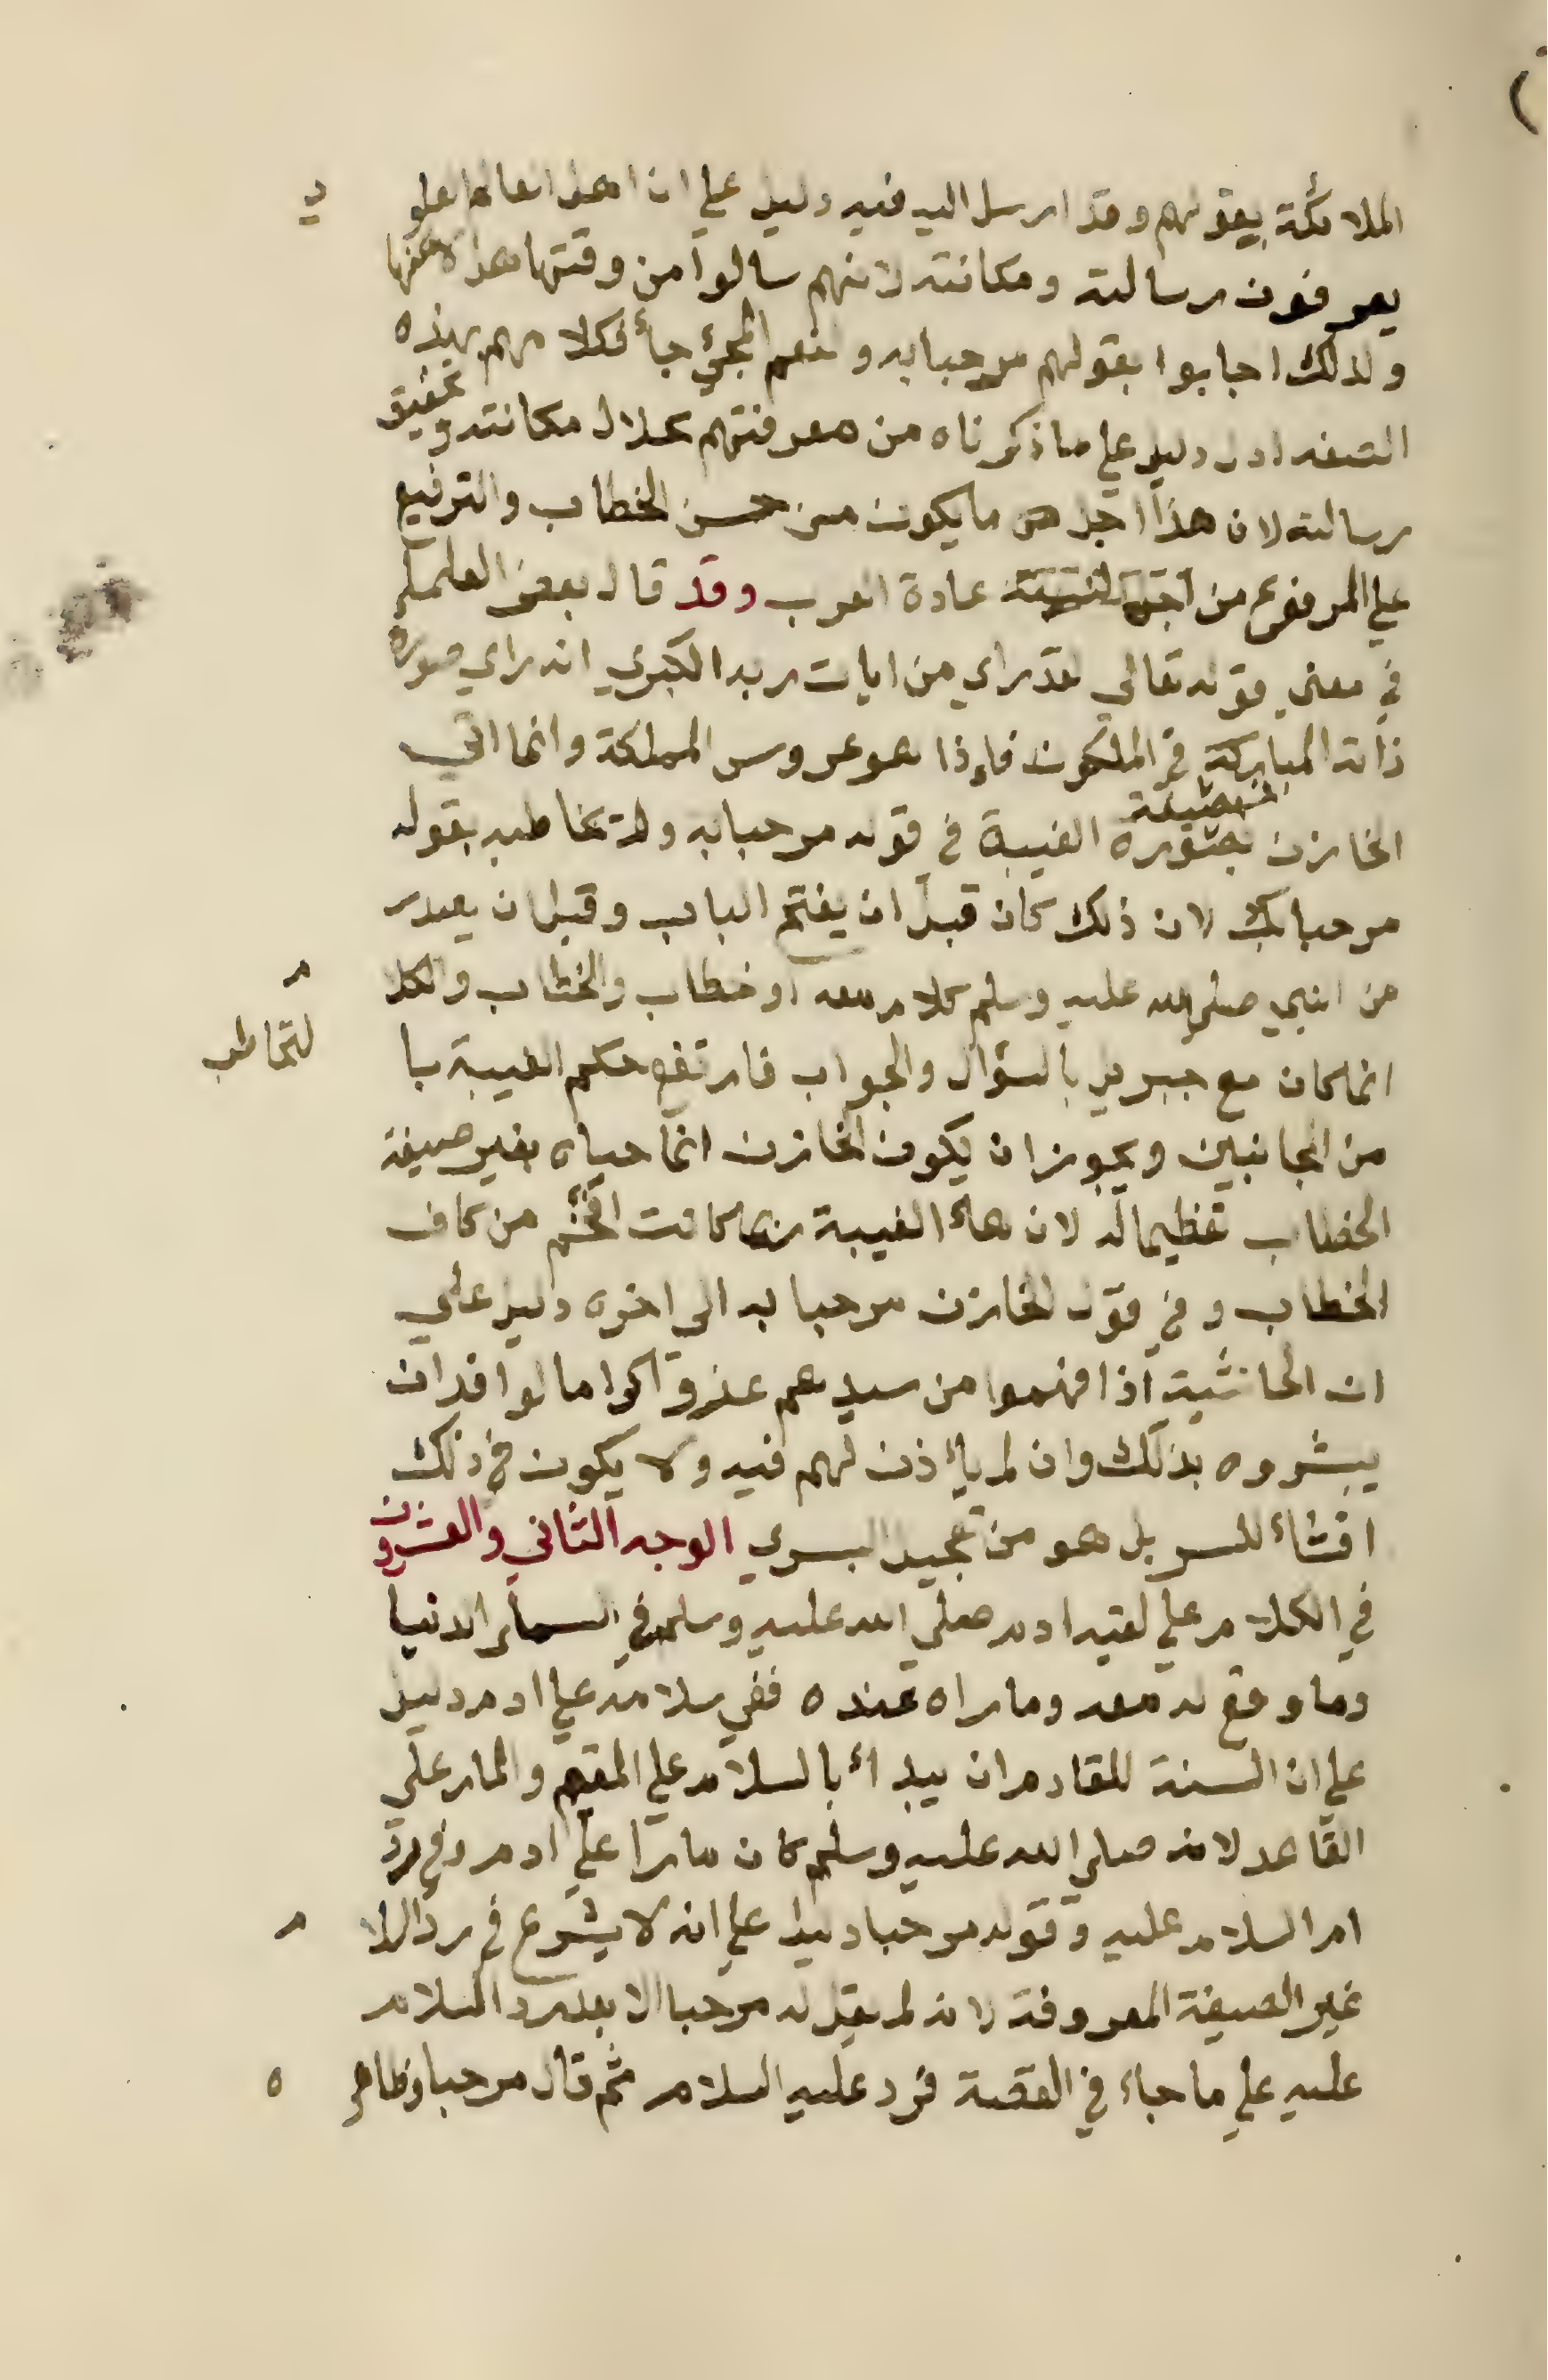 الملائكة بقولهم وقد ارسل اليه فيه دليل علي ان اهل العالم العلو
ي
يعرفون رسالته ومكانته لانهم سالوا من وقتها هل
ولذلك اجابوا بقولهم مرحبا به ونعم المجئ جاء فكلامهم بهذه
الصفه ادل دليل علي ما ذكرناه من معرفتهم بجلال مكانته وتحقيق
رسالته لان هذا اجل ما يكون من حسن الخطاب والترفيع
علي المعروف من عادة العرب وقد قال بعض العلماء
في معني قوله تعالي لقد راي من ايات ربه الكبري انه راي صورة
ذاته المباركة في الملكوت فاذا هو عروس المملكة وانما اتي
الخازن بصيغة الغيبة في قوله مرحبا به ولم يخاطبه بقوله
مرحبا بك لان ذلك كان قبل ان يفتح الباب وقبل ان يصدر
من النبي صلي الله عليه وسلم كلام معه او خطاب والخطاب والكلا
م
انما كان مع جبريل بالسؤال والجواب فارتفع حكم الغيبة با
لتخاطب
من الجانبين ويجوز ان يكون الخازن انما حياه بغير صيغة
الخطاب تعظيما له لان هاء الغيبة ربما كانت افخم من كاف
الخطاب وفي قول الخازن مرحبا به الي اخره دليل علي
ان الحاشية اذا فهموا من سيدهم عزو اكراما لوافد ان
يبشروه بذلك وان لم يأذن لهم فيه ولا يكون في ذلك
افشاء للسر بل هو من تعجيل البشري الوجه الثاني والعشرون
في الكلام علي لقيه ادم صلي الله عليه وسلم في السماء الدنيا
وما وقع له معه وما راه عنده ففي سلامه علي ادم دليل
علي ان السنة للقادم ان يبدأ بالسلام علي المقيم والمار علي
القاعد لانه صلي الله عليه وسلم كان مارا علي ادم وفي رد
ادم السلام عليه وقوله مرحبا دليل علي انه لا يشرع في رد السلا
م
غير الصيغة المعروفة لانه لم يقل له مرحبا الا بعد رد السلام
عليه علي ما جاء في القصة فرد عليه السلام ثم قال مرحبا وظاهر
ه